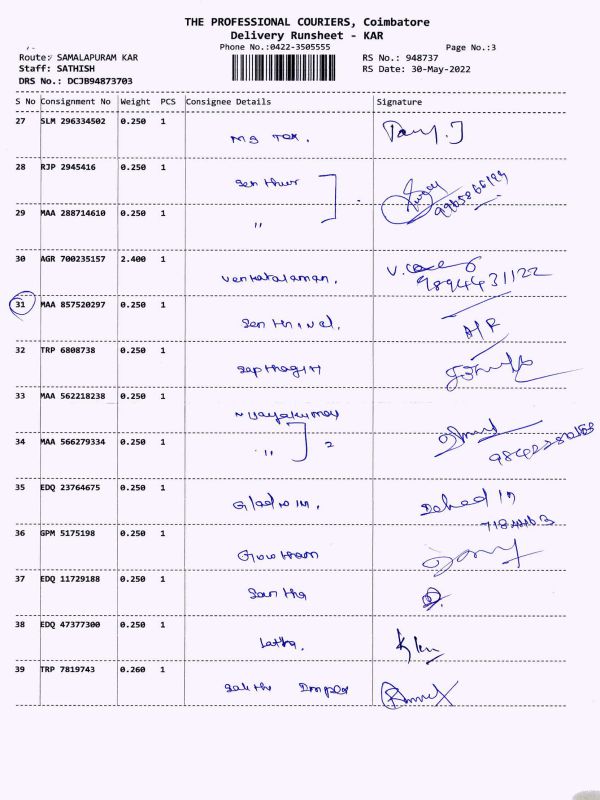 THE PROFESSIONAL COURIERS, Coimbatore
Delivery Runsheet - KAR
Phone No.:0422-3505555 Page No.:3
Route: SAMALAPURAM KAR RS No.: 948737
Staff: SATHISH RS Date: 30-May-2022
DRS No.: DCJB94873703
S No Consignment No Weight PCS Consignee Details Signature
27 SLM 296334502 0.250 1
28 RJP 2945416 0.250 1 Senthur
29 MAA 288714610 0.250 1 "
30 AGR 700235157 2.400 1 Venkataraman. 9894431122
31 MAA 857520297 0.250 1 Senthilvel. A/R
32 TRP 6808738 0.250 1 Sapthagiri
33 MAA 562218238 0.250 1 Vijayakumar
34 MAA 566279334 0.250 1 " 2
35 EDQ 23764675 0.250 1
36 GPM 5175198 0.250 1 Gowtham
37 EDQ 11729188 0.250 1 Santha
38 EDQ 47377300 0.250 1 Latha.
39 TRP 7819743 0.260 1 Sakthi